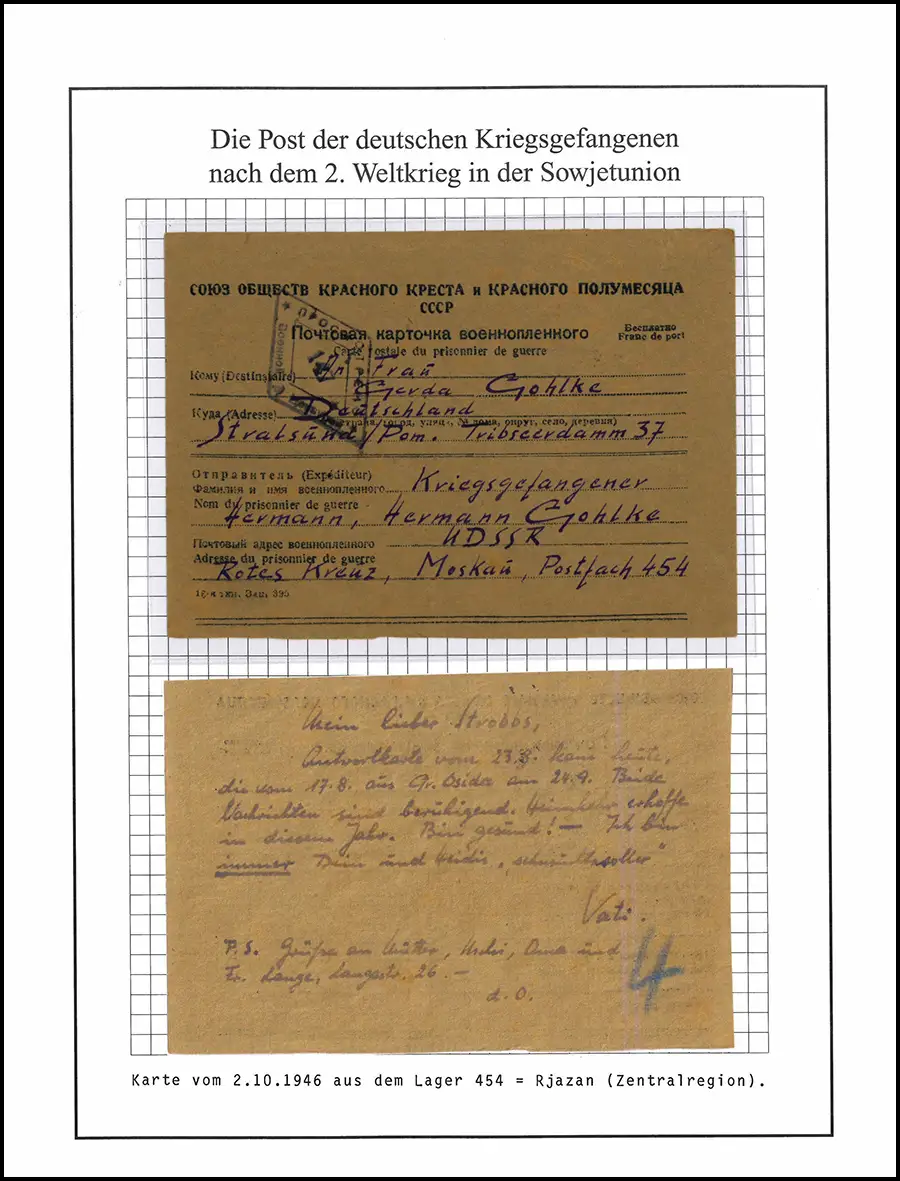 Die Post der deutschen Kriegsgefangenen
nach dem 2. Weltkrieg in der Sowjetunion
СОЮЗ ОБЩЕСТВ КРАСНОГО КРЕСТА и КРАСНОГО ПОЛУМЕСЯЦА
СССР
Почтовая карточка военнопленного
Бесплатно
Franc de port
Carte postale du prisonnier de guerre
Кому (Destinataire) An Frau
Gerda Gohlke
Куда (Adresse) Deutschland
(страна, город, улица, № дома, округ, село, деревня)
Stralsund/Pom. Tribseerdamm 37
Отправитель (Expéditeur)
Фамилия и имя военнопленного Kriegsgefangener
Nom du prisonnier de guerre
Hermann, Hermann Gohlke
Почтовый адрес военнопленного UDSSR
Adresse du prisonnier de guerre
Rotes Kreuz, Moskau, Postfach 454
Зак. 395
Mein lieber
Antwortkarte vom 23.8. kam heute,
die vom 17.8. aus Gr. am 24.9. Beide
Nachrichten sind beruhigend. Heimkehr erhoffe
in diesem Jahr. Bin gesund! — Ich bin
immer Dein und Heidis
Vati.
P.S. Grüße an Mutter, Oma und
Fr. Lange, Langestr. 26. —
d. O.
4
Karte vom 2.10.1946 aus dem Lager 454 = Rjazan (Zentralregion).